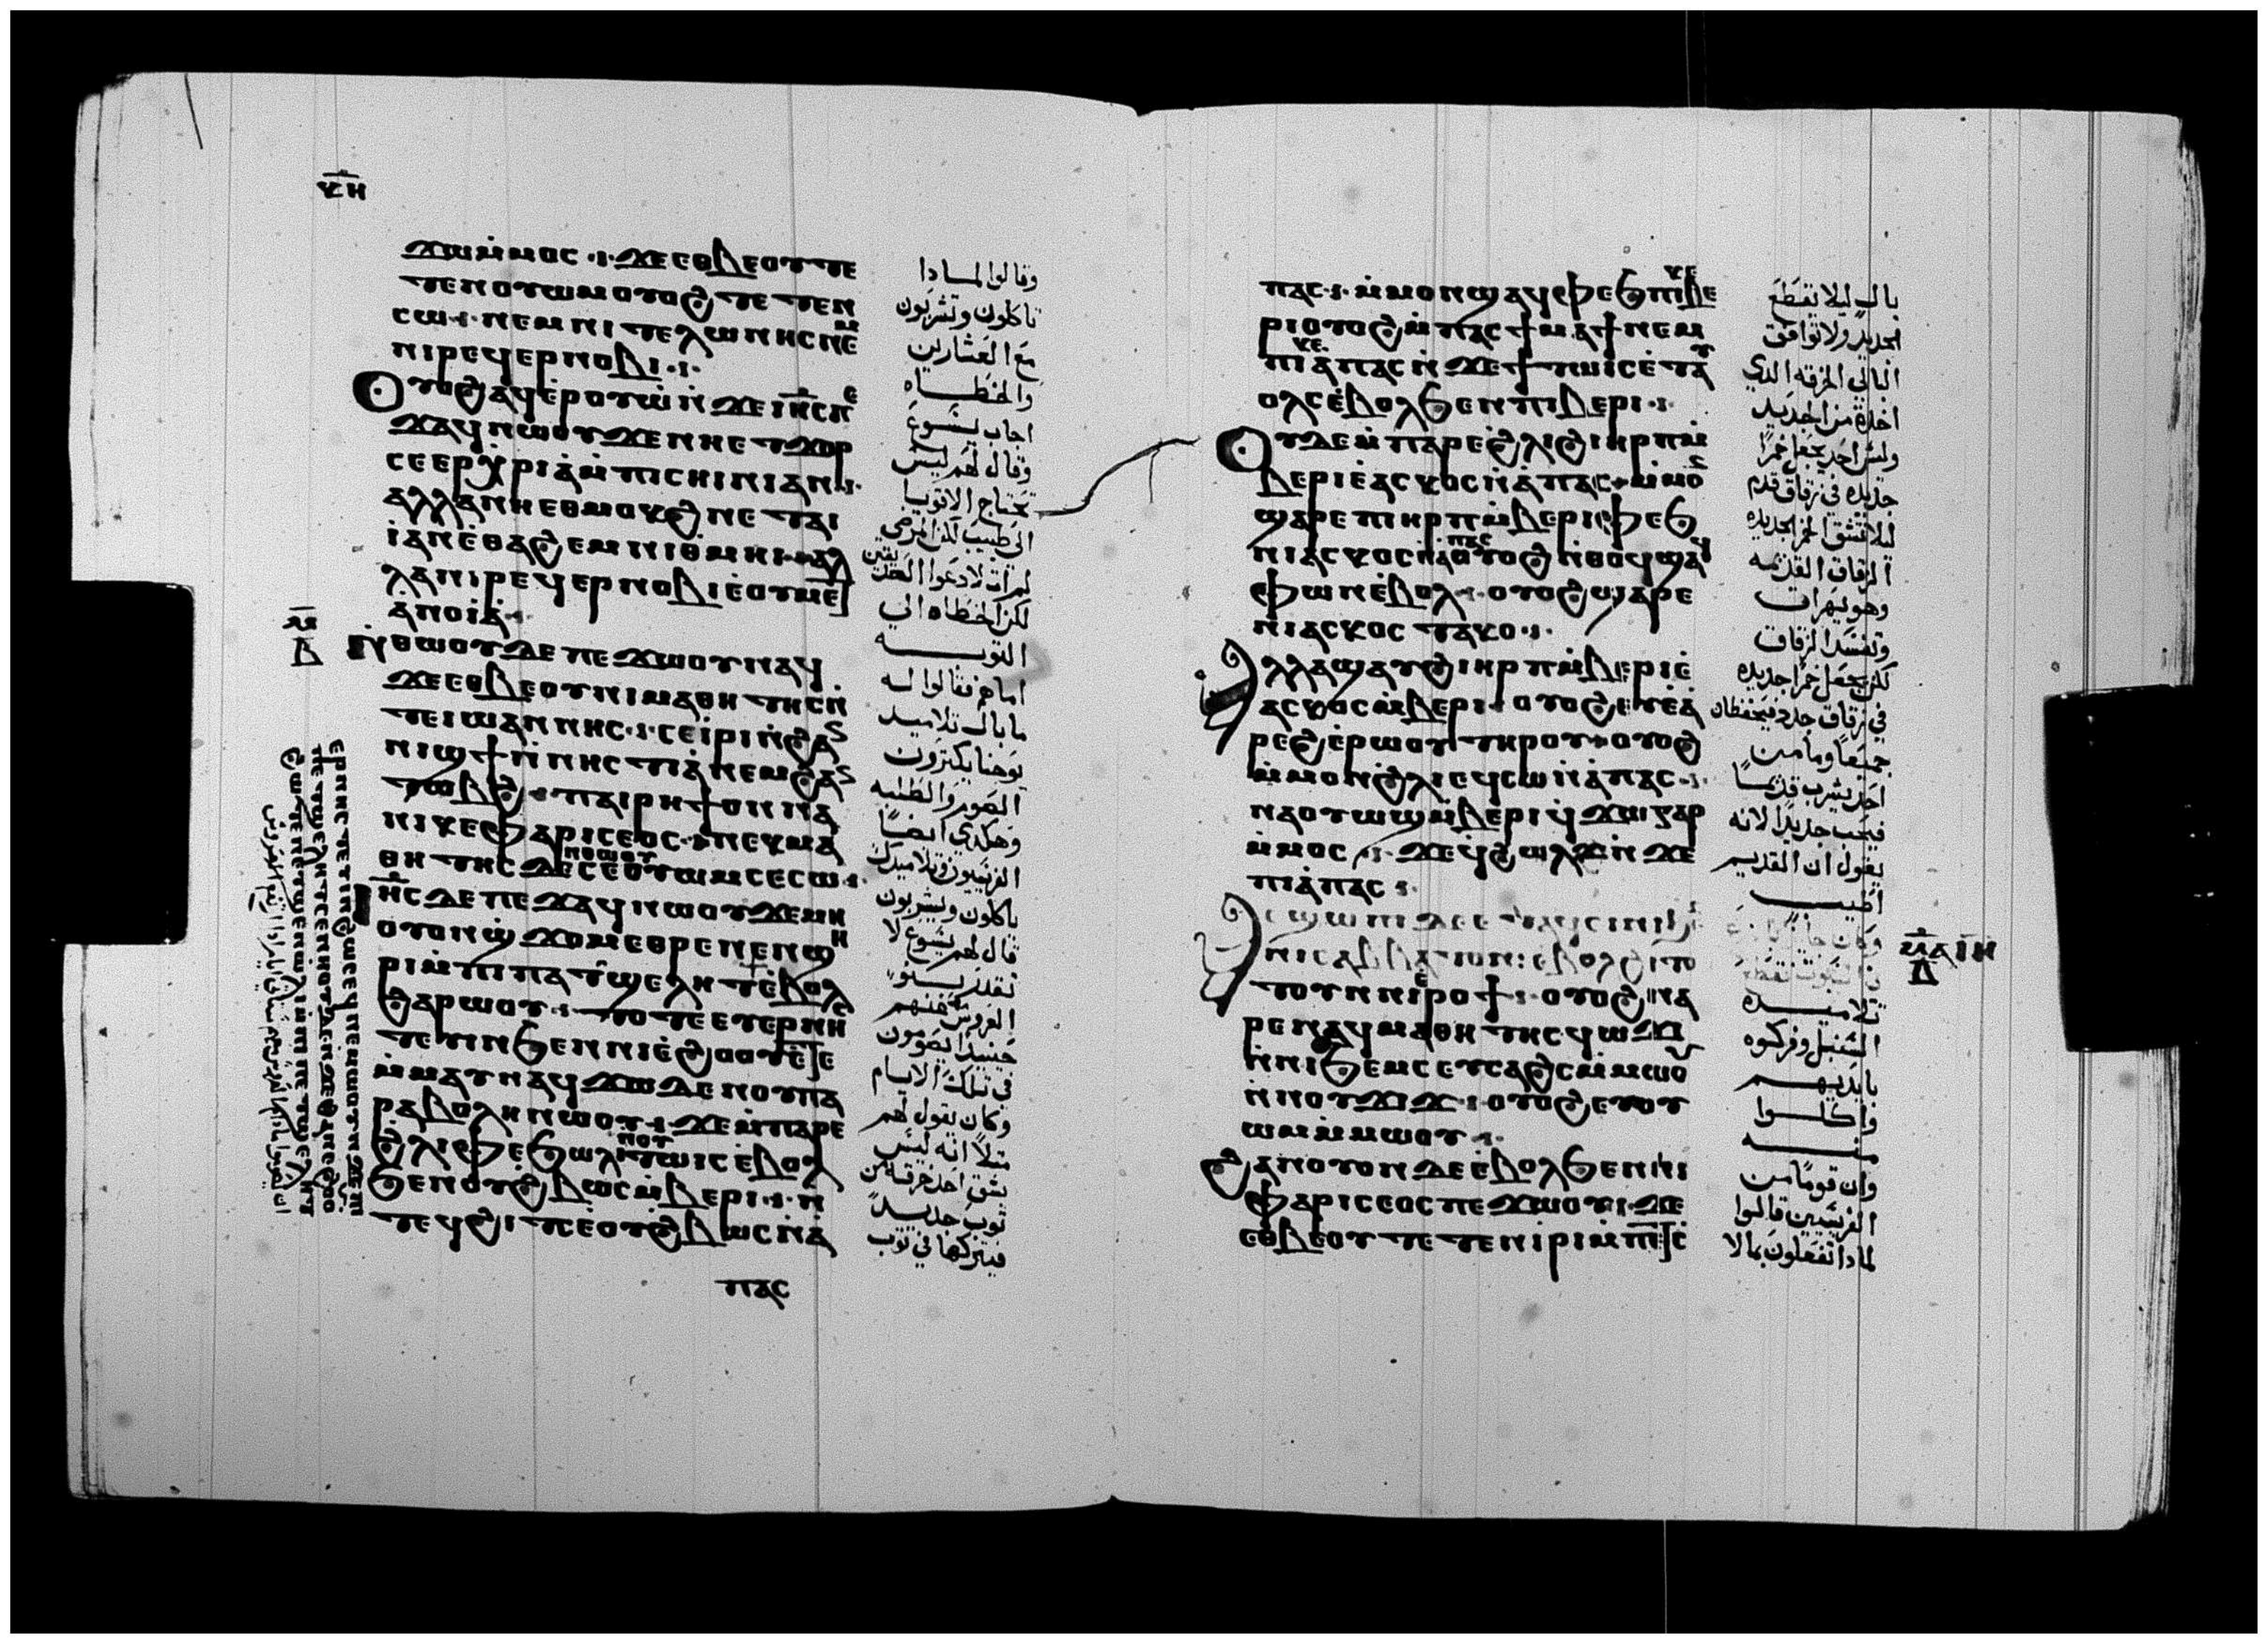 ⲕⲏ
ϫⲱⲙⲙⲟⲥ ϫⲉⲉⲑⲃⲉⲟⲩⲧⲉ
ⲧⲉⲛⲟⲩⲱⲙⲟⲩⲟϩ ⲧⲉⲧⲉⲛ
ⲥⲱ ⲛⲉⲙⲛⲓⲧⲉⲗⲱⲛⲏⲥⲛⲉⲙ
ⲛⲓⲣⲉϥⲉⲣⲛⲟⲃⲓ
ⲟⲩⲟϩ ⲁϥⲉⲣⲟⲩⲱⲛ̀ϫⲉⲓⲏⲥⲡⲉ
ϫⲁϥⲛⲱⲟⲩϫⲉⲛⲏⲉⲧϫⲟⲣ
ⲥⲉⲉⲣⲭⲣⲓⲁⲙ̀ⲡⲓⲥⲏⲓⲛⲓⲁⲛ
ⲁⲗⲗⲁⲛⲏⲉⲑⲙⲟⲕϩ ⲛⲉⲧⲁⲓ
ⲓ̀ⲁⲛⲉ̀ⲑⲁϩⲉⲙⲛⲓⲑⲙⲏⲓ ⲁⲗ
ⲗⲁⲛⲓⲣⲉϥⲉⲣⲛⲟⲃⲓⲉ̀ⲟⲩⲙⲉⲧ
ⲁⲛⲟⲓⲁ
ⲛ̀ⲑⲱⲟⲩⲇⲉⲡⲉϫⲱⲟⲩⲛⲁϥ
ϫⲉⲉⲑⲃⲉⲟⲩⲛⲓⲙⲁⲑⲏⲧⲏⲥⲛ̀
ⲧⲉⲓⲱⲁⲛⲛⲏⲥ ⲥⲉⲓ̀ⲣⲓⲛ̀ϩⲁⲛ
ⲛⲓϣϯⲛ̀ⲛⲏⲥⲧⲓⲁ̀ⲛⲉⲙϩⲁⲛ
ⲧⲱⲃϩ ⲡⲁⲓⲣⲏϯⲟⲛⲛⲁ
ⲛⲓⲕⲉⲫⲁⲣⲓⲥⲉⲟⲥ ⲛⲉⲕⲙⲁ
ⲑⲏⲧⲏⲥ ⲛⲑⲱⲟⲩ ⲇⲉⲥⲉⲟⲩⲱⲙⲥⲉⲥⲱ
ⲓⲏⲥⲇⲉⲡⲉϫⲁϥⲛⲱⲟⲩϫⲉⲙⲏ
ⲟⲩⲟⲛϣϫⲟⲙⲉⲑⲣⲉⲛⲉⲛϣⲏ
ⲣⲓⲙ̀ⲡⲓⲡⲁⲧϣⲉⲗⲏⲧ
ϩⲁⲣⲱⲟⲩ ⲧⲟⲧⲉⲉⲩⲉⲣⲛⲏⲥ
ⲧⲉⲩⲓⲛϧⲉⲛⲛⲓⲉ̀ϩⲟⲟⲩⲉⲧⲉ
ⲙ̀ⲙⲁⲩⲛⲁϥϫⲱⲇⲉⲛⲟⲩⲡⲁ
ⲣⲁⲃⲟⲗⲏⲛⲱⲟⲩ ϫⲉⲙ̀ⲡⲁⲣⲉ
ϩⲗⲓⲫⲉϧⲱⲗⲛ̀ⲟⲩⲧⲱⲓⲥⲉ̀ⲃⲟⲗ
ϧⲉⲛⲟⲩϩⲃⲱⲥⲙ̀ⲃⲉⲣⲓ ⲛ
ⲧⲉϥϩⲓⲧⲥⲉⲟⲩϩⲃⲱⲥⲛ̀ⲁ̀
ⲡⲁⲥ
وقالوا لماذا
تاكلون وتشربون
مع العشارين
والخطاه
اجاب يسوع
وقال لهم ليس
تحتاج الاقويا
الى طبيب لكن المرضى
لم ات لادعوا الصديقين
لكن الخطاه الى
التوبه
اما هم فقالوا له
ما بال تلاميد
يوحنا يكترون
الصوم والطلبه
وهكدي ايضًا
الفريسيون وتلاميدك
ياكلون ويشربون
قال لهم يسوع لا
تقدر بنو
العروس
حينيدًا يصومون
في تلك الايام
وكان يقول لهم
مثلًا انه ليس
يشق احد خرقه من
توب جديدًا
فيتركها في توب
ⲡⲁⲥ ⲙ̀ⲙⲟⲛϣⲁϥⲫⲉϧⲡⲓⲕⲉⲃⲉ
ⲣⲓⲟⲩⲟϩⲙ̀ⲡⲁⲥϯⲙⲁϯⲛⲉⲙ
ⲡⲓⲕⲉⲁ̀ⲡⲁⲥⲛ̀ϫⲉϯⲧⲱⲓⲥⲉ̀ⲧⲁⲩ
ⲟⲗⲥⲉ̀ⲃⲟⲗϧⲉⲛⲡⲓⲃⲉⲣⲓ
ⲟⲩⲇⲉⲙ̀ⲡⲁⲣⲉϩⲗⲓϩⲓⲏⲣⲡⲙ̀
ⲃⲉⲣⲓⲉ̀ⲁⲥⲕⲟⲥⲛ̀ⲁ̀ⲡⲁⲥ ⲙ̀ⲙⲟⲛ
ϣⲁⲣⲉⲡⲓⲏⲣⲡⲙ̀ⲃⲉⲣⲓⲫⲉϧ
ⲛⲓⲁⲥⲕⲟⲥⲛ̀ⲁⲡⲁⲥⲟⲩⲟϩ ⲛ̀ⲑⲟϥϣⲁϥ
ⲫⲱⲛⲉ̀ⲃⲟⲗ ⲟⲩⲟϩ ϣⲁⲣⲉ
ⲛⲓⲁⲥⲕⲟⲥ ⲧⲁⲕⲟ
ⲁⲗⲗⲁϣⲁⲩϩⲓⲏⲣⲡⲙ̀ⲃⲉⲣⲓⲉ̀
ⲁⲥⲕⲟⲥⲙ̀ⲃⲉⲣⲓ ⲟⲩⲟϩ ⲉⲩⲉⲁ̀
ⲣⲉϩ ⲉ̀ⲣⲱⲟⲩ ⲧⲏⲣⲟⲩ ⲟⲩⲟϩ
ⲙ̀ⲙⲟⲛϩⲗⲓⲉϥⲥⲱⲛ̀ⲁ̀ⲡⲁⲥ
ⲛⲁⲟⲩⲱϣⲙ̀ⲃⲉⲣⲓ ϥϫⲱⲅⲁⲣ
ⲙ̀ⲙⲟⲥ ϫⲉϥϩⲱⲗϫⲛ̀ϫⲉ
ⲡⲓⲁ̀ⲡⲁⲥ
ⲁⲥϣⲱⲡⲓⲇⲉⲉⲧⲁϥⲥⲓⲛⲓ
ⲛⲓⲥⲁⲃⲃⲁⲧⲟⲛ ⲉⲃⲟⲗϩⲓⲧⲟ
ⲧⲟⲩⲛⲛⲓⲉⲣⲟϯ ⲟⲩⲟϩ ⲛⲁ
ⲣⲉⲛⲁϥⲙⲁⲑⲏⲧⲏⲥϥⲱϫⲓ
ⲛ̀ⲛⲓϧⲉⲙⲥⲉⲩⲥⲁϩⲥⲙ̀ⲙⲱⲟⲩ
ⲛ̀ⲛⲟⲩϫⲓϫ ⲟⲩⲟϩ ⲉⲩⲟⲩ
ⲱⲙⲙ̀ⲙⲱⲟⲩ
ϩⲁⲛⲟⲩⲟⲛⲇⲉⲉ̀ⲃⲟⲗϧⲉⲛⲛⲓ
ⲫⲁⲣⲓⲥⲉⲟⲥⲡⲉϫⲱⲟⲩ ϫⲉ
ⲉⲑⲃⲉⲟⲩ ⲧⲉⲧⲉⲛⲓⲣⲓⲙ̀ⲡⲉⲧⲥ̀
بال ليلا تقطع
الجديد ولا توافق
البالي الخرقه الدي
اخده من الجديد
وليس احد يجعل خمرًا
جديده في زقاق قدم
ليلا تشق الخمر الجديده
الزقاق القديمه
وهو يهراق
وتفسد الزقاق
لكن يجعل خمرًا جديده
في زقاق جدد فيحفظان
جميعًا وما من
احد يشرب قديمًا
فيحب جديدًا لانه
يقول ان القديم
اطيب
تلاميده
السنبل وفركوه
بايديهم
واكلوا
منه
وان قومًا من
الفريسيين قالوا
لمادا تفعلون ما لا